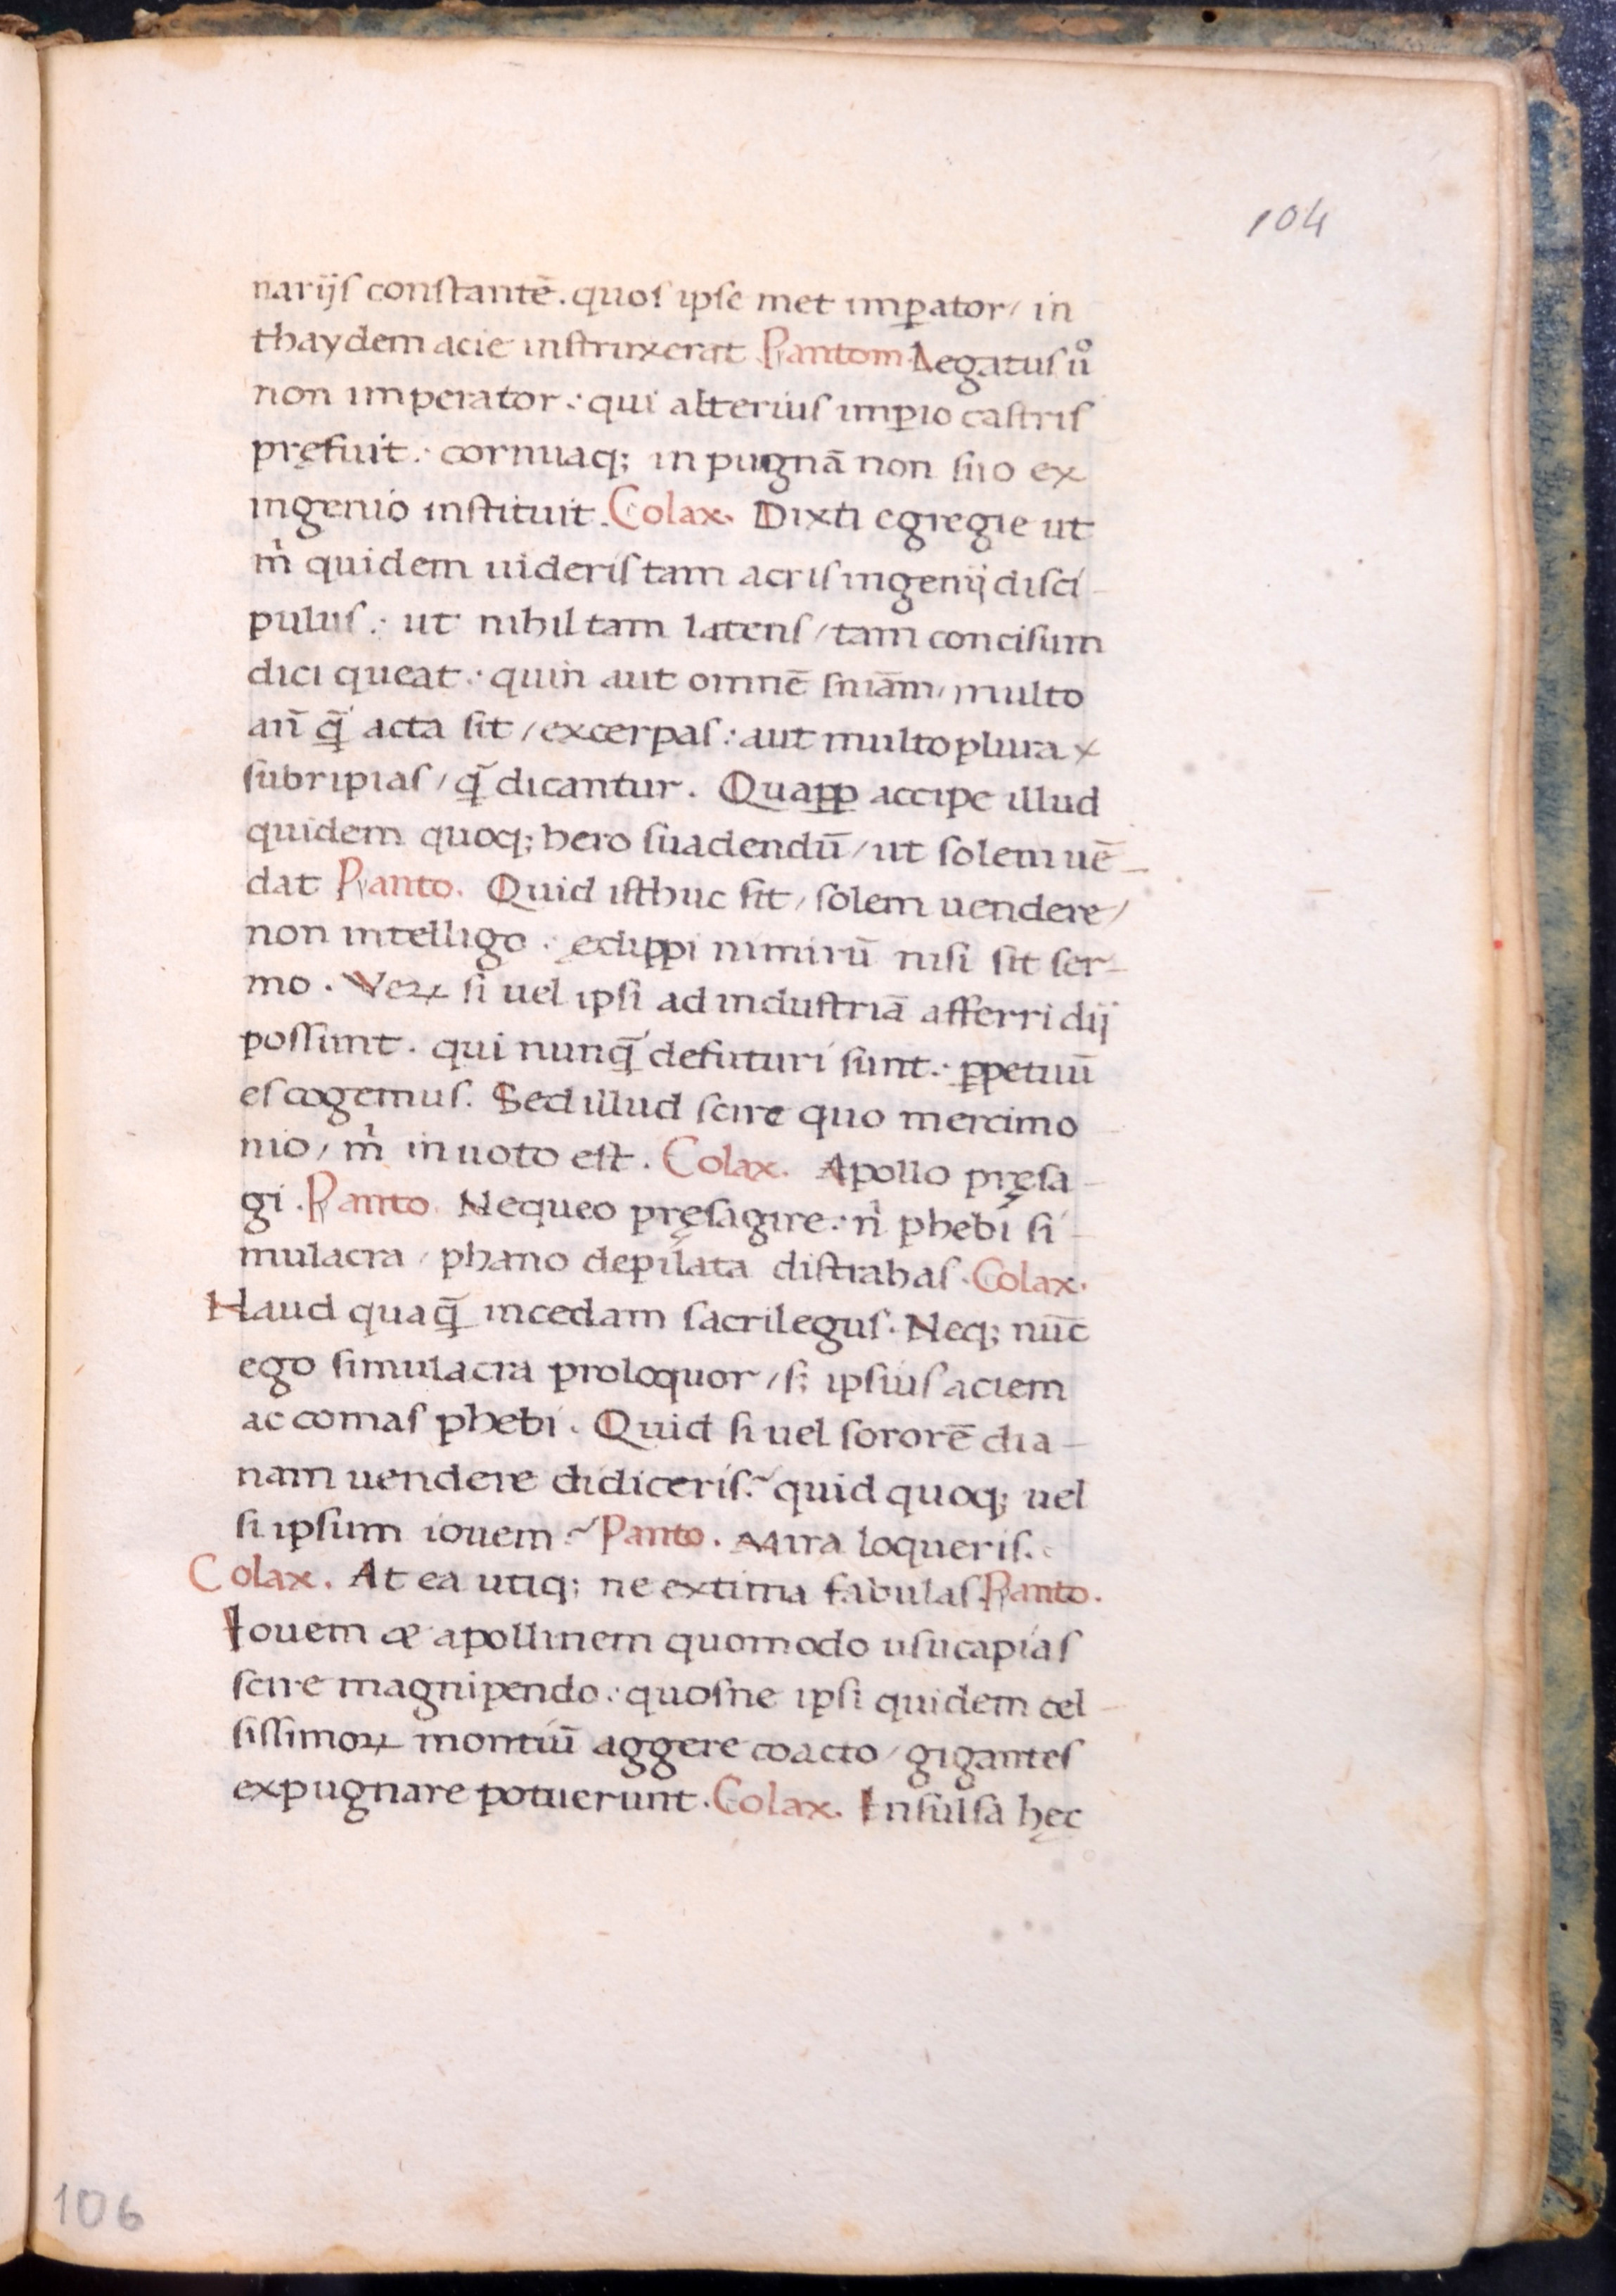 104
narijs constantē. quos ipse met imꝑator / in
thaydem acie instruxerat Pantom Legatus uͦ
non imperator : qui alterius imꝑio castris
pręfuit : cornuaq; in pugnā non suo ex
ingenio instituit. Colax. Dixti egregie ut
m̍ quidem uideris tam acris ingenij disci-
pulus : ut nihil tam latens / tam concisum
dici queat : quin aut omnē sniām / multo
an̄ q̄ acta sit / excerpas : aut multo plura
subripias / q̄ dicantur. Quaꝓꝑ accipe illud
quidem quoq; hero suadendū / ut solem uē-
dat Panto. Quid isthuc sit / solem uendere /
non intelligo : ędippi nimirū nisi sit ser-
mo. Veꝝ si uel ipsi ad industriā afferri dij
possunt. qui nunq̄ defuturi sunt : ꝑpetuū
es cogemus. Sed illud scire quo mercimo-
nio / m̍ in uoto est. Colax. Apollo pręsa-
gi. Panto. Nequeo pręsagire : n̍ phebi si-
mulacra / phano depilata distrahas. Colax.
Haud quaq̄ incedam sacrilegus. Neq; nūc
ego simulacra proloquor / s; ipsius aciem
ac comas phebi. Quid si uel sororē dia-
nam uendere didiceris? quid quoq; uel
si ipsum iouem? Panto. Mira loqueris.
Colax. At ea utiq; ne extima fabulas Panto.
Iouem & apollinem quomodo usucapias
scire magnipendo : quosne ipsi quidem cel-
sissimoꝝ montiū aggere coacto / gigantes
expugnare potuerunt. Colax. Insulsa hęc
106